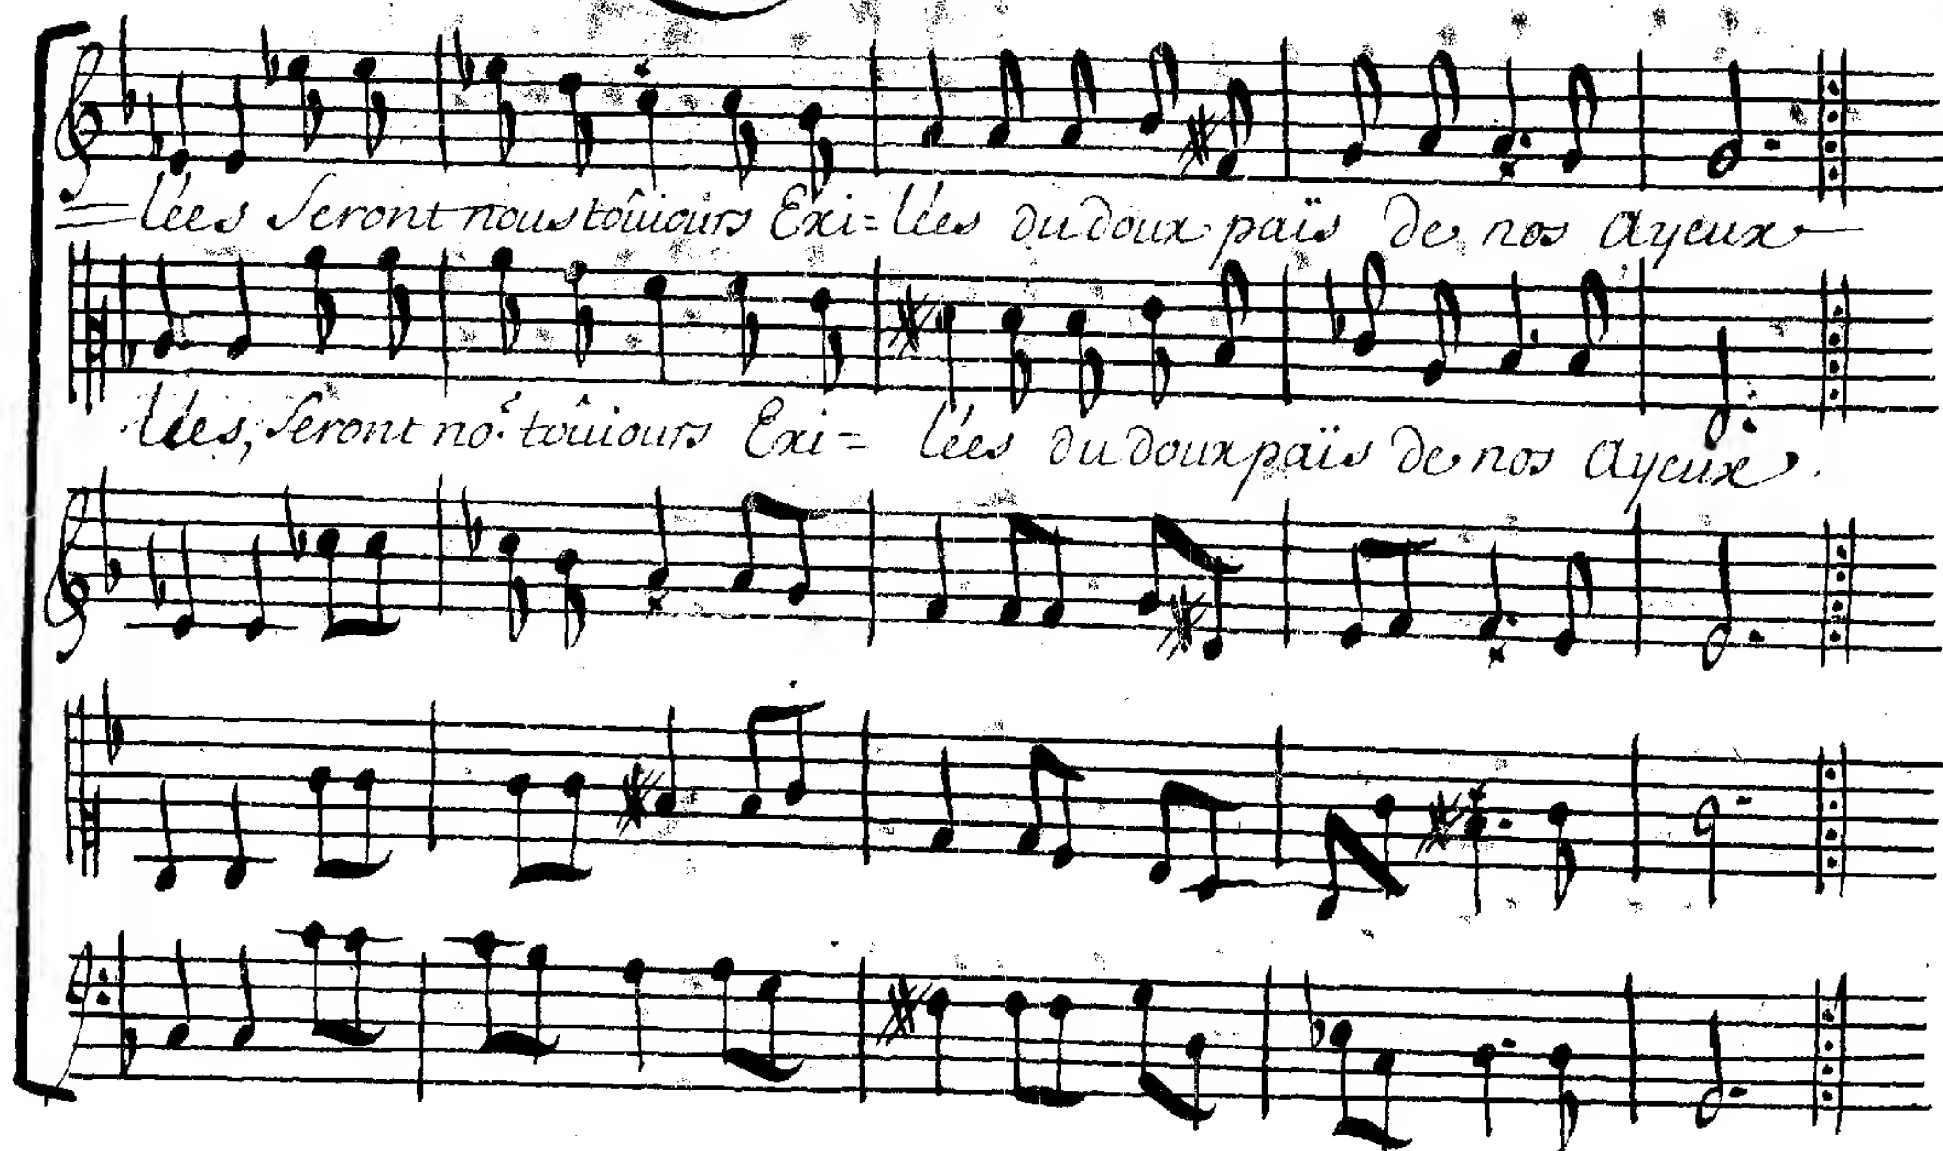 =lées Seront nous toûiours Exi=lées du doux païs de nos ayeux
lées, Seront no.s toûiours Exi= lées du doux païs de nos ayeux.